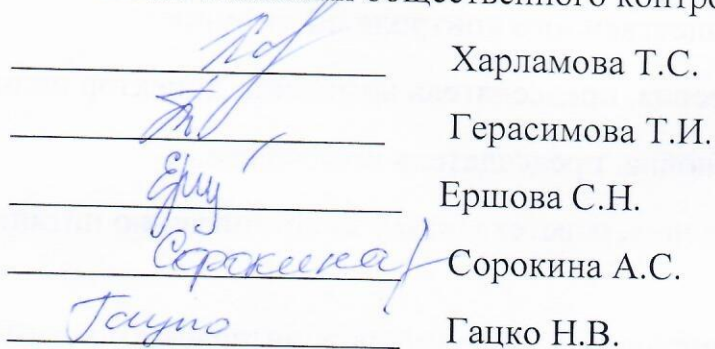 общественного контро
Харламова Т.С.
Герасимова Т.И.
Ершова С.Н.
Сорокина Сорокина А.С.
Гацко Гацко Н.В.